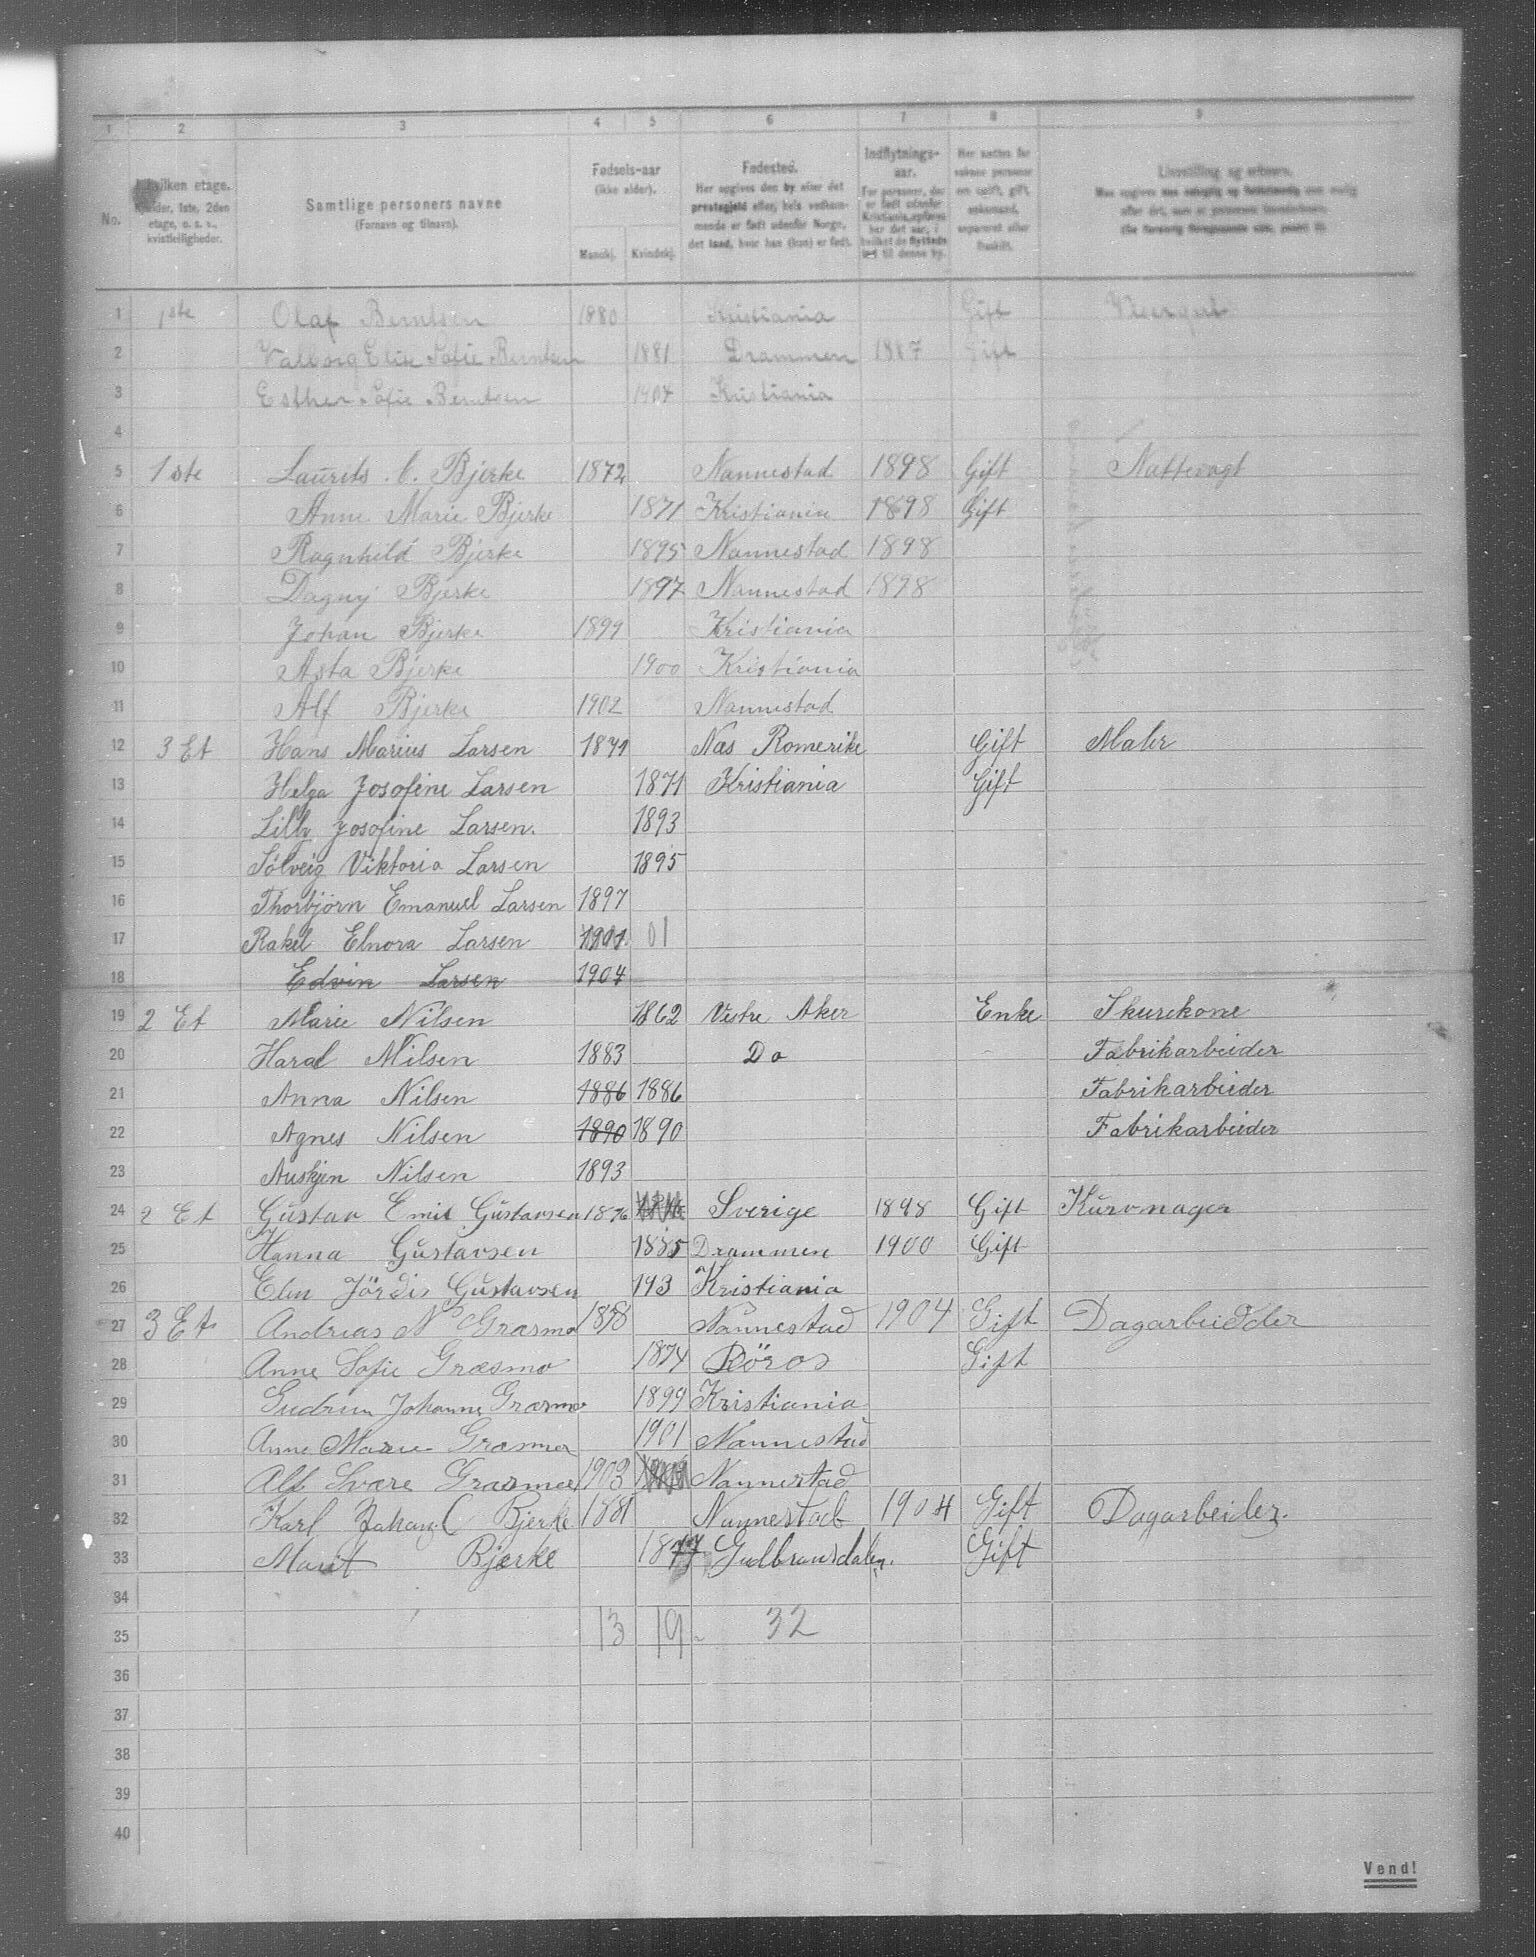 1 2 3 4 5 6 7 8 9
No. I hvilken etage. Kjelder, 1ste, 2den etage, o. s. v., kvistleiligheder. Samtlige personers navne (Fornavn og tilnavn). Fødsels-aar (ikke alder). Mandkj. Kvindekj. Fødested. Her opgives den by eller det prestegjeld eller, hvis vedkommende er født udenfor Norge, det land, hvor han (hun) er født. Indflytnings-aar. For personer, der er født udenfor Kristiania, opføres her det aar, i hvilket de flyttede ind til denne by. Her sættes for voksne personer om ugift, gift, enkemand, separeret eller fraskilt. Livsstilling og erhverv.
1 1ste Olaf Berntsen 1880 Kristiania Gift
2 Valborg Elise Sofie Berntsen 1881 Drammen 1887 Gift
3 Esther Sofie Berntsen 1904 Kristiania
4
5 1ste Laurits C. Bjerke 1872 Nannestad 1898 Gift Nattevagt
6 Anne Marie Bjerke 1871 Kristiania 1898 Gift
7 Ragnhild Bjerke 1895 Nannestad 1898
8 Dagny Bjerke 1897 Nannestad 1898
9 Johan Bjerke 1899 Kristiania
10 Asta Bjerke 1900 Kristiania
11 Alf Bjerke 1902 Nannestad
12 3 Et Hans Marius Larsen 1871 Nas Romerike Gift Maler
13 Helga Josofine Larsen 1871 Kristiania Gift
14 Lilly Josofine Larsen. 1893
15 Solveig Viktoria Larsen 1895
16 Thorbjörn Emanuel Larsen 1897
17 Rakel Elnora Larsen 1901 01
18 Edvin Larsen 1904
19 2 Et Marie Nilsen 1862 Vestre Aker Enke Skurekone
20 Haral Nilsen 1883 Do Fabrikarbeider
21 Anna Nilsen 1886 1886 Fabrikarbeider
22 Agnes Nilsen 1890 1890 Fabrikarbeider
23 Auskjen Nilsen 1893
24 2 Et Gustav Emil Gustavsen 1876 Sverige 1898 Gift Kurvmager
25 Hanna Gustavsen 1885 Drammen 1900 Gift
26 Elen Jördis Gustavsen 193 Kristiania
27 3 Et Andreas N Græsmo 1878 Nannestad 1904 Gift Dagarbeidder
28 Anne Sofie Græsmo 1874 Röros Gift
29 Gudrun Johanne Græsmo 1899 Kristiania
30 Anne Marie Græsmo 1901 Nannestad
31 Alf Svare Græsmo 1903 Nannestad
32 Karl Johan C Bjerke 1881 Nannestad 1904 Gift Dagarbeider.
33 Marit Bjerke 1877 Gulbransdalen. Gift
34
35 13 19 32
36
37
38
39
40
Vend!